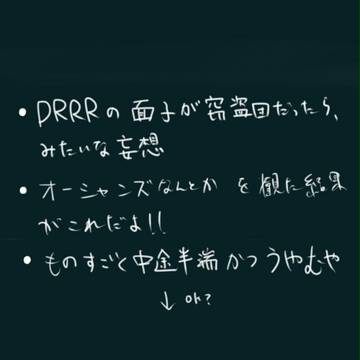 • DRRRの面子が窃盗団だったら、
みたいな妄想
• オーシャンズなんとか を観た結果
がこれだよ!!
• ものすごく中途半端かつうやむや
↓ ok?